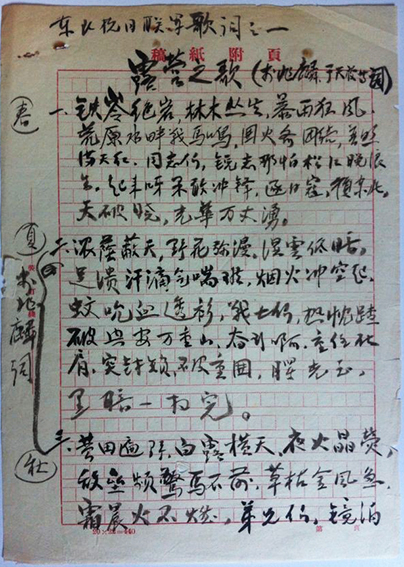 东北抗日联军歌词之一
稿紙附頁
露营之歌(李兆麟、于天放
春
一、铁岭绝岩,林木丛生,暴雨狂风,
荒原水畔战马鸣,围火齐团结,普照
满天红。同志们,锐志那怕松江晚浪
生。起来呀果敢冲锋,逐日寇,复东北,
天破晓,光华万丈涌。
夏
二、浓荫蔽天,野花弥漫,湿雲低暗,
足溃汗滴气喘难,烟火冲空起,
蚊吮血透衫,战士们,热忱踏
破兴安万重山,奋斗啊,重任在
肩,突封锁,破重围,曙光至,
黑暗一扫完。
李兆麟詞
秋
三、荒田遍野,白露横天,夜火晶莹,
敌垒频驚馬不前,草枯金风急,
霜晨火不燃,弟兄们,镜泊
20×22=440